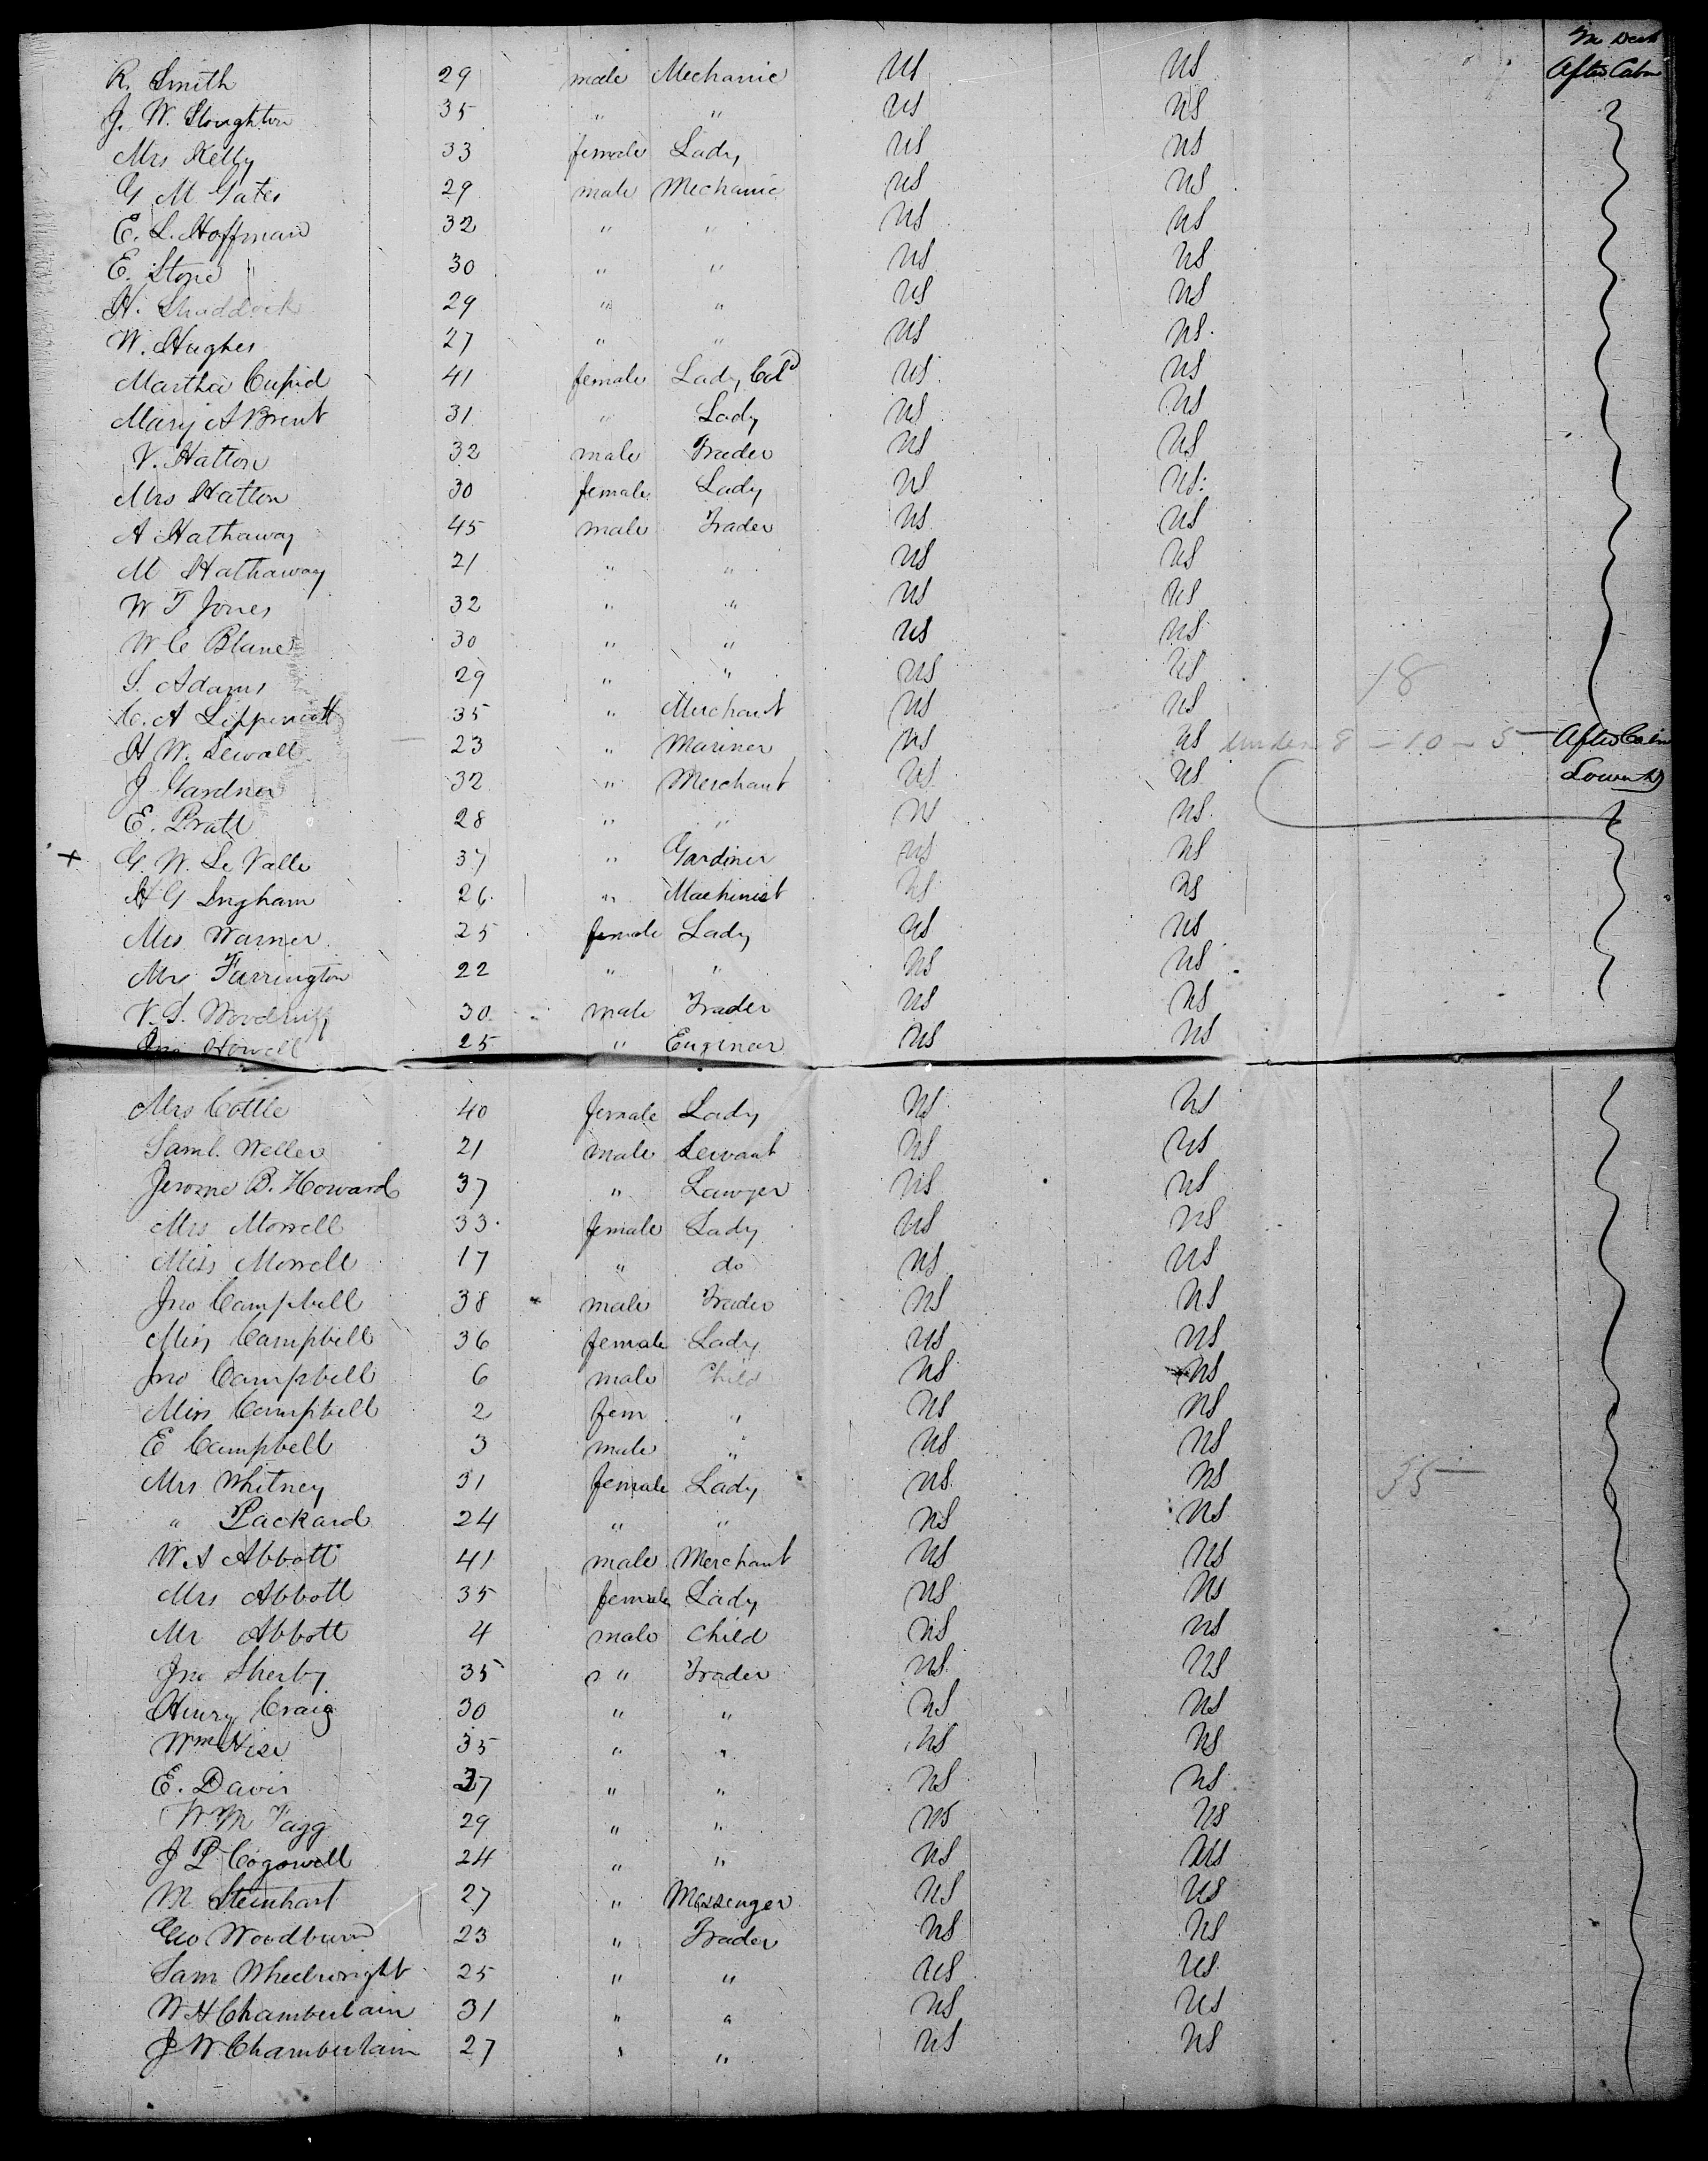 Dech
R. Smith 29 male Mechanic US US After Cabn
J. W. Stoughton 35 " " US US
Mrs Kelly 33 female Lady US US
G M Gates 29 male Mechanic US US
E. L. Hoffman 32 " " US US
E. Stone 30 " " US US
H. Shaddock 29 " " US US
W. Hughes 27 " " US US
Martha Cupid 41 female Lady Cold US US
Mary A Brent 31 " Lady US US
V. Hatton 32 male Trader US US
Mrs Hatton 30 female Lady US US
A Hathaway 45 male Trader US US
M Hathaway 21 " " US US
W T Jones 32 " " US US
W C Blane 30 " " US US
S. Adams 29 " " US US 18
C. A Lippincott 35 " Merchant US US
H W. Sewall 23 " Mariner US US under 8 - 10 - 5 After Cabn
J Gardner 32 " Merchant US US Lower
E. Pratt 28 " " US US
+ G. W. Le Valle 37 " Gardiner US US
H G Ingham 26 " Machinist US US
Mrs Warner 25 female Lady US US
Mrs Farrington 22 " " US US
V. S. Woodruff 30 male Trader US US
Jno Howell 25 " Engineer US US
Mrs Cottle 40 female Lady US US
Saml. Weller 21 male Servant US US
Jerome B. Howard 37 " Lawyer US US
Mrs Morrell 33 female Lady US US
Miss Morrell 17 " do US US
Jno Campbell 38 male Trader US US
Miss Campbell 36 female Lady US US
Jno Campbell 6 male Child US US
Miss Campbell 2 fem " US US
E Campbell 3 male " US US
Mrs Whitney 31 female Lady US US 35
" Packard 24 " " US US
W. A Abbott 41 male Merchant US US
Mrs Abbott 35 female Lady US US
Mr Abbott 4 male Child US US
Jno Sherby 35 " Trader US US
Henry Craig 30 " " US US
Wm Hise 35 " " US US
E. Davis 37 " " US US
W. M Fagg 29 " " US US
J P Cogswell 24 " " US US
M Steinhart 27 " Messenger US US
Geo Woodburn 23 " Trader US US
Sam Wheelwright 25 " " US US
W H Chamberlain 31 " " US US
J W Chamberlain 27 " " US US